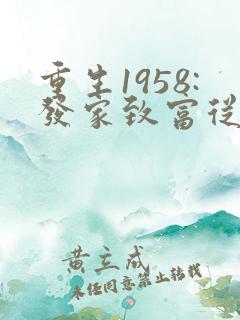 重生1958:
發家致富從
黃立成
未經同意禁止轉載